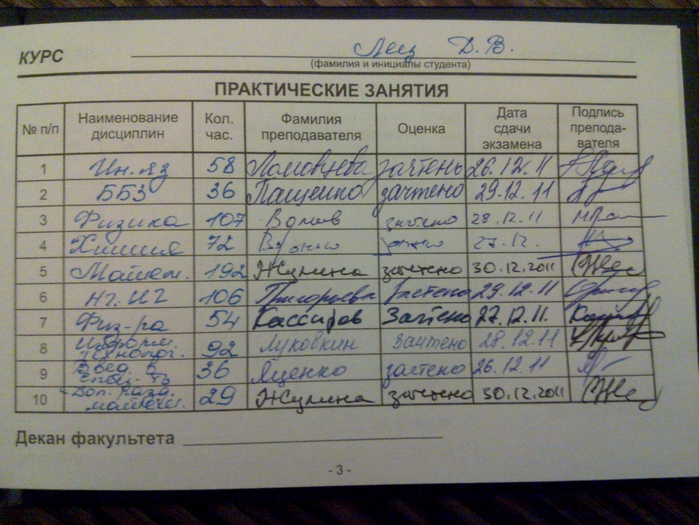 КУРС Лещ Д.В.
(фамилия и инициалы студента)
ПРАКТИЧЕСКИЕ ЗАНЯТИЯ
№ п/п Наименование дисциплин Кол. час. Фамилия преподавателя Оценка Дата сдачи экзамена Подпись препода- вателя
1 Ин.яз 58 зачтено 26.12.11
2 ББЗ 36 Пащенко зачтено 29.12.11
3 Физика 107 зачтено 28.12.11
4 Химия 72 27.12.
5 Матем. 192 Жулина зачтено 30.12.2011
6 НГ.ИГ 106 Григорьева зачтено 29.12.11
7 Физ-ра 54 Кассиров Зачтено 27.12.11.
8 Информ. технолог. 92 Луковкин Зачтено 28.12.11
9 Введ. в 36 Яценко зачтено 26.12.11
10 Доп. разд. математ. 29 Жулина зачтено 30.12.2011
Декан факультета
- 3 -